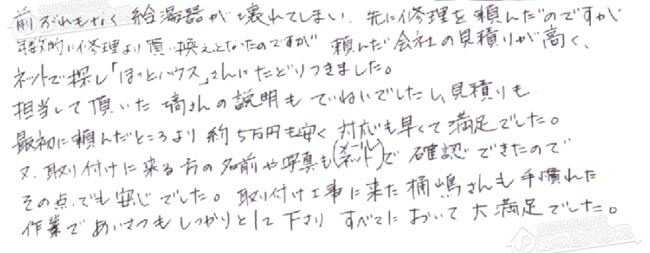 前ぶれもなく給湯器が壊れてしまい、先に修理を頼んだのですが
最終的に修理より取り換えとなったのですが 頼んだ会社の見積りが高く、
ネットで探し「ほっとハウス」さんにたどりつきました。
担当して頂いた塙さんの説明もていねいでしたし、見積りも
最初に頼んだところより約5万円も安く対応も早くて満足でした。
又、取り付けに来る方の名前や写真も(メール ネット)で確認できたので
その点でも安心でした。取り付け工事に来た桶嶋さんも手慣れた
作業であいさつもしっかりとして下さり すべてにおいて大満足でした。